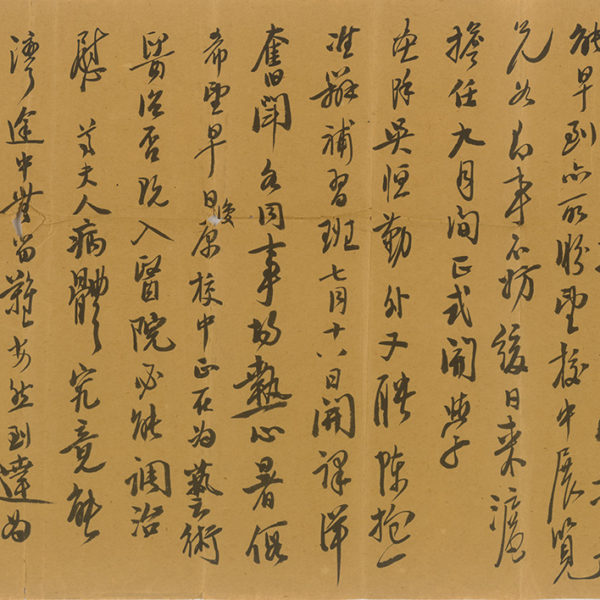 能早到亦所盼望校中展覽
兄如有事不妨緩日來滬
擔任九月間正式開學
畫除吳恒勤外又聘陳抱一
准辦補習班七月十八日開課洋
奮聞各同事均熱心暑假
希望早日復原校中正在為藝術
醫治否既入醫院必能調治
慰尊夫人病體究竟能
灣途中無留難安然到達為